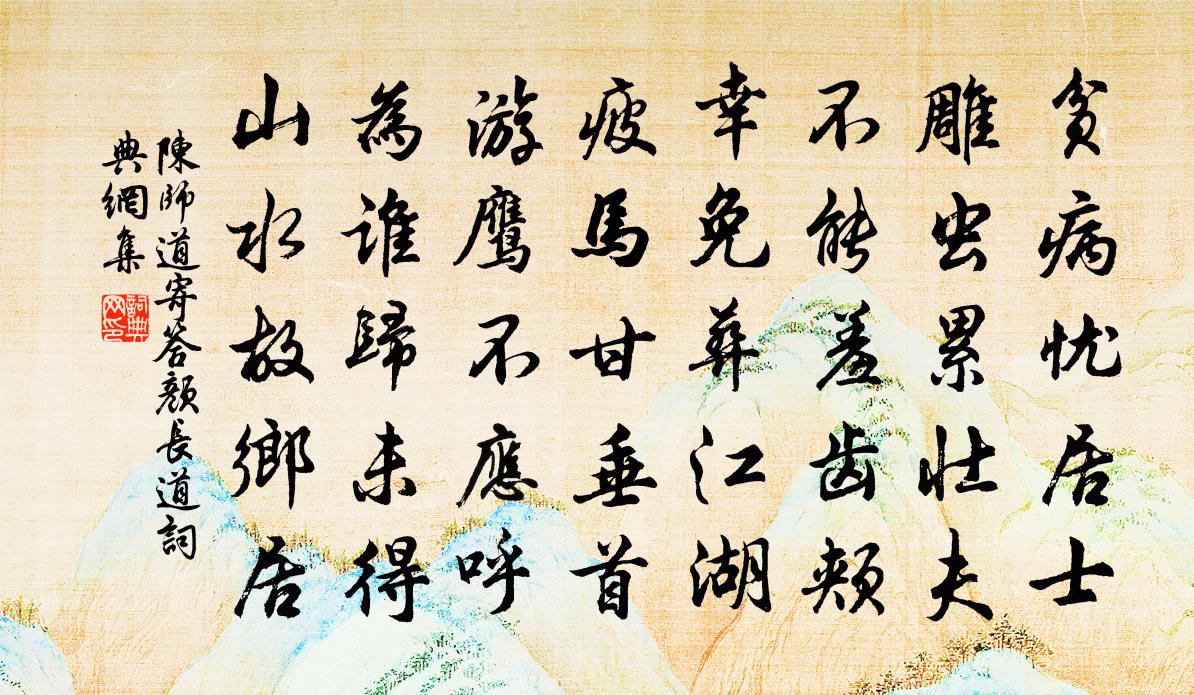 贫病忧居士
雕虫累壮夫
不能羞齿颊
幸免葬江湖
疲馬甘垂首
游鹰不應呼
為谁歸未得
山水故鄉居
陳師道寄答顏長道詞
典網集
詞典
网印